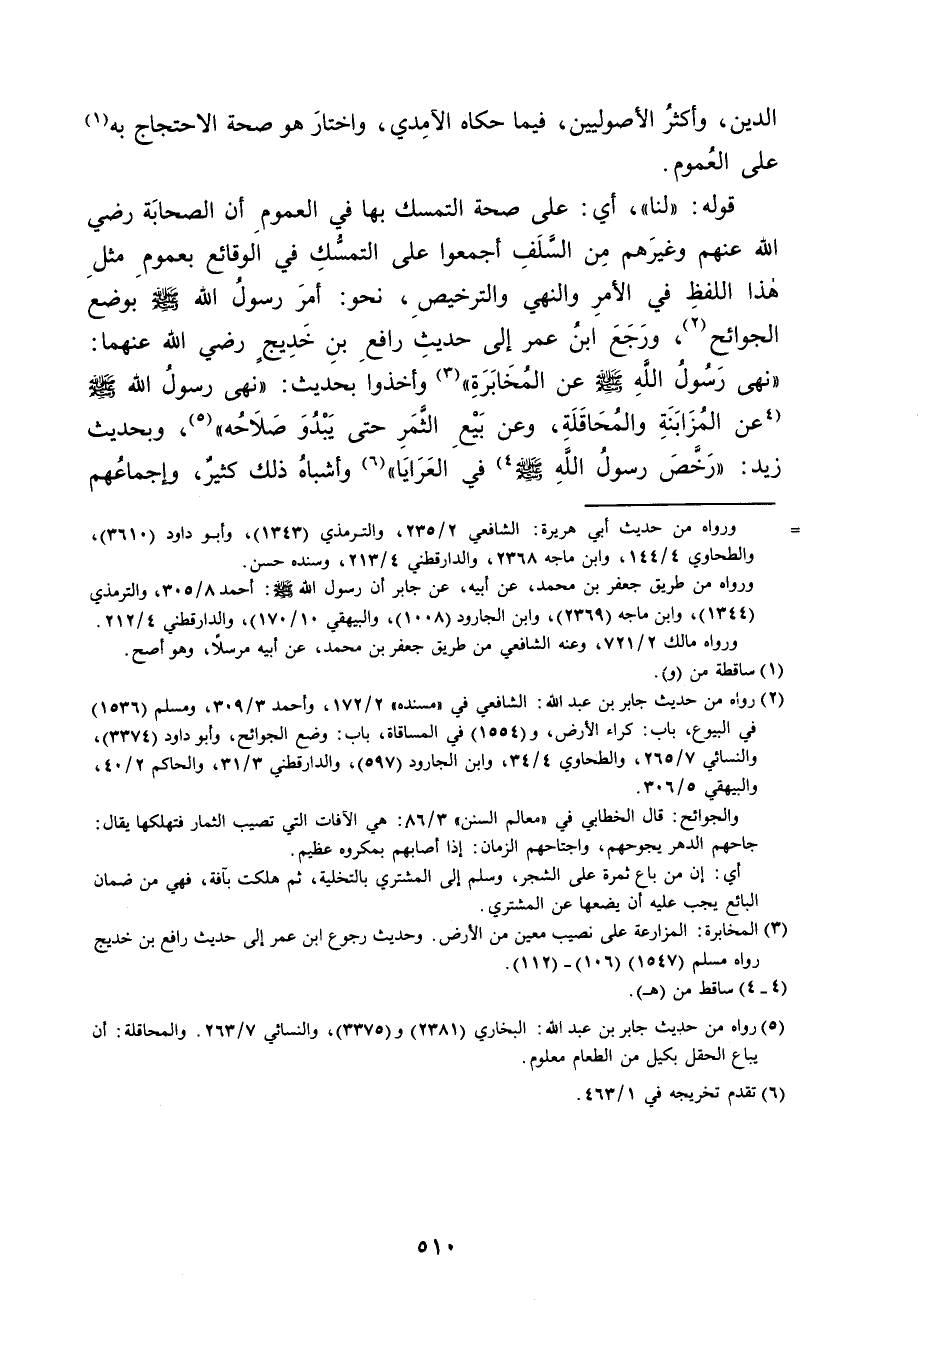 الدين، وأكثرُ الأصوليين، فيما حكاه الآمِدي، واختارَ هو صحة الاحتجاج به(١)
على العُموم.
قوله: «لنا»، أي: على صحة التمسك بها في العموم أن الصحابَة رضي
الله عنهم وغيرَهم مِن السَّلَفِ أجمعوا على التمسُّكِ في الوقائع بعموم مثلِ
هٰذا اللفظِ في الأمرِ والنهي والترخيصِ، نحو: أمرَ رسولُ الله ﷺ بوضع
الجوائح(٢)، ورَجَعَ ابنُ عمر إلى حديثِ رافع بنِ خَدِيجٍ رضي الله عنهما:
«نهى رَسُولُ اللَّهِ ﷺ عن المُخَابَرَةِ»(٣) وأخذوا بحديث: «نهى رسولُ الله ﷺ
(٤عن المُزَابَنَةِ والمُحَاقَلَةِ، وعن بَيْعِ الثَّمَرِ حتى يَبْدُوَ صَلَاحُه»(٥)، وبحديث
زيد: «رَخَّصَ رسولُ اللَّهِ ﷺ٤) في العَرَايَا»(٦) وأشباهُ ذلك كثيرٌ، وإجماعُهم
= ورواه من حديث أبي هريرة: الشافعي ٢٣٥/٢، والترمذي (١٣٤٣)، وأبو داود (٣٦١٠)،
والطحاوي ١٤٤/٤، وابن ماجه ٢٣٦٨، والدارقطني ٢١٣/٤، وسنده حسن.
ورواه من طريق جعفر بن محمد، عن أبيه، عن جابر أن رسول الله ﷺ: أحمد ٣٠٥/٨، والترمذي
(١٣٤٤)، وابن ماجه (٢٣٦٩)، وابن الجارود (١٠٠٨)، والبيهقي ١٧٠/١٠)، والدارقطني ٢١٢/٤.
ورواه مالك ٧٢١/٢، وعنه الشافعي من طريق جعفر بن محمد، عن أبيه مرسلًا، وهو أصح.
(١) ساقطة من (و).
(٢) رواه من حديث جابر بن عبد الله: الشافعي في «مسنده» ١٧٢/٢، وأحمد ٣٠٩/٣، ومسلم (١٥٣٦)
في البيوع، باب: كراء الأرض، و(١٥٥٤) في المساقاة، باب: وضع الجوائح، وأبو داود (٣٣٧٤)،
والنسائي ٢٦٥/٧، والطحاوي ٣٤/٤، وابن الجارود (٥٩٧)، والدارقطني ٣١/٣، والحاكم ٤٠/٢،
والبيهقي ٣٠٦/٥.
والجوائح: قال الخطابي في «معالم السنن» ٨٦/٣: هي الآفات التي تصيب الثمار فتهلكها يقال:
جاحهم الدهر يجوحهم، واجتاحهم الزمان: إذا أصابهم بمكروه عظيم.
أي: إن من باع ثمرة على الشجر، وسلم إلى المشتري بالتخلية، ثم هلكت بآفة، فهي من ضمان
البائع يجب عليه أن يضعها عن المشتري.
(٣) المخابرة: المزارعة على نصيب معين من الأرض. وحديث رجوع ابن عمر إلى حديث رافع بن خديج
رواه مسلم (١٥٤٧) (١٠٦) - (١١٢).
(٤ - ٤) ساقط من (هـ).
(٥) رواه من حديث جابر بن عبد الله: البخاري (٢٣٨١) و(٣٣٧٥)، والنسائي ٢٦٣/٧. والمحاقلة: أن
يباع الحقل بكيل من الطعام معلوم.
(٦) تقدم تخريجه في ٤٦٣/١.
٥١٠